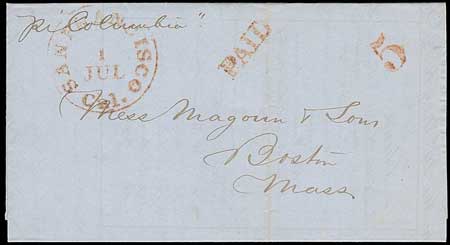 pr "Columbia"
SAN FRANCISCO
1
JUL
Cal.
PAID
5
Mess Magoun & Sons
Boston
Mass